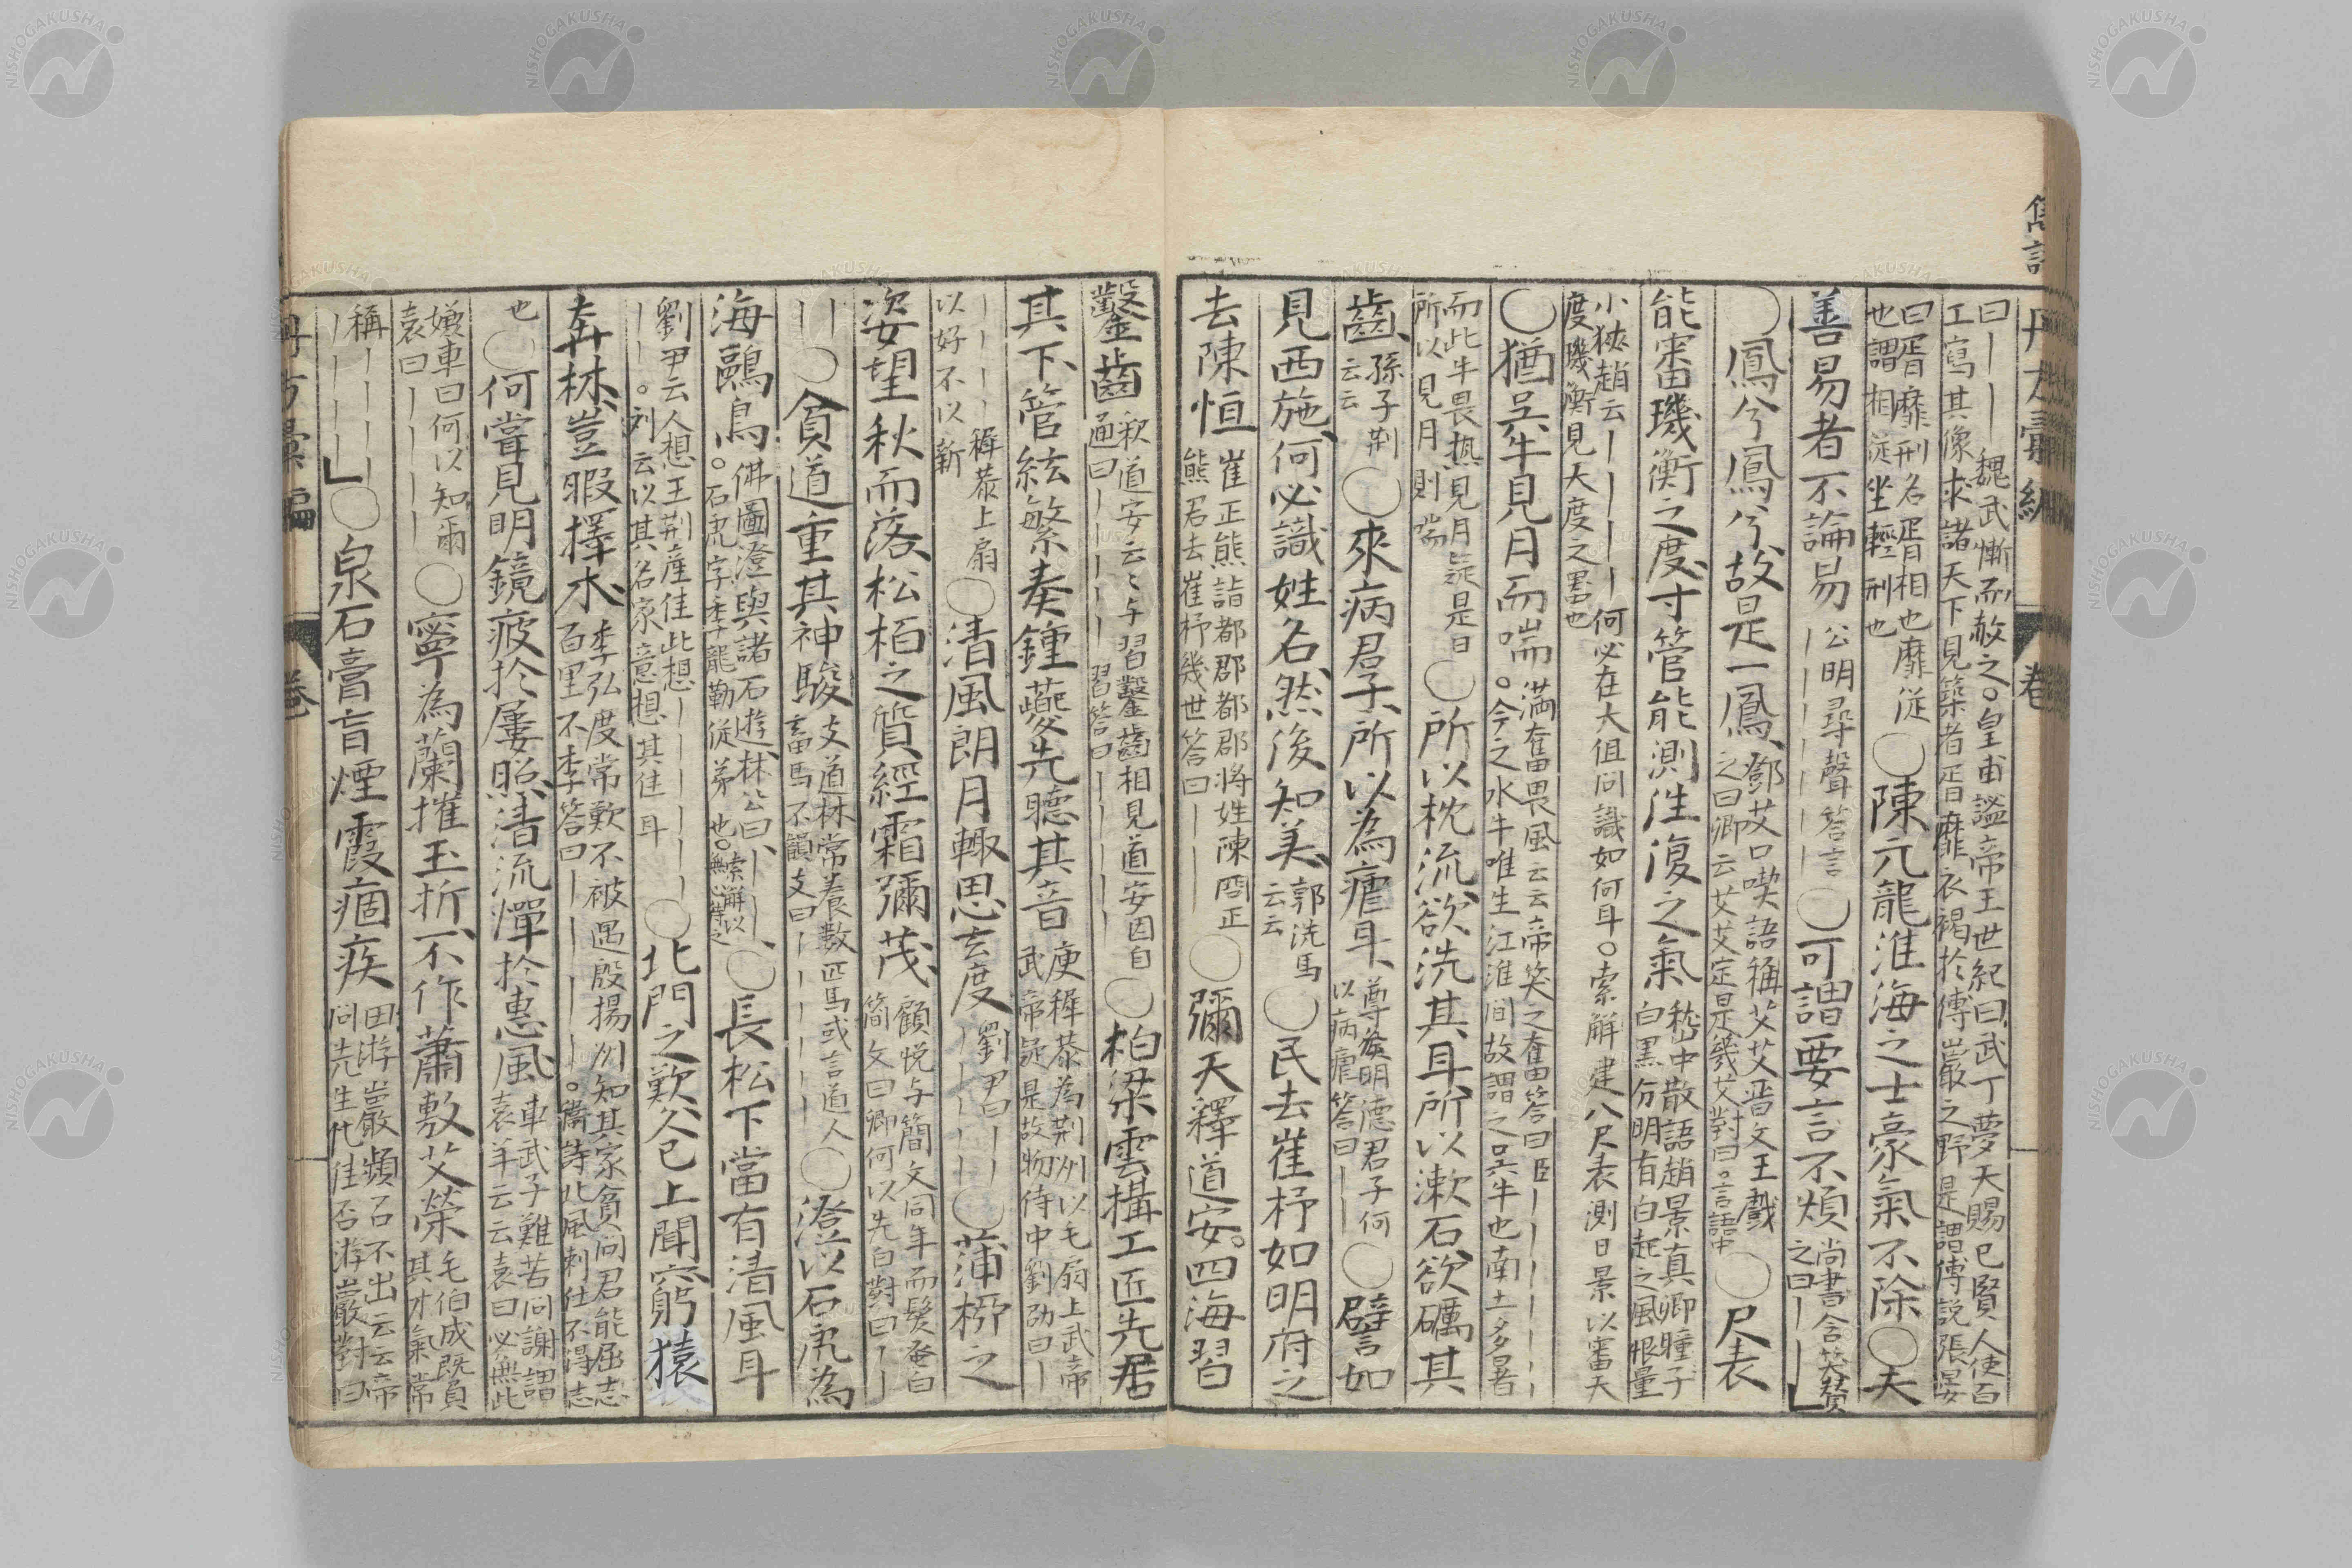 雋語
丹方彙編 卷
曰｜｜｜魏武慚而赦之。皇甫謐帝王世紀曰武丁夢天賜已賢人使百
工寫其像求諸天下見築者胥靡衣褐於傅巖之野是謂傅説張晏
曰胥靡刑名胥相也靡從
也謂相從坐輕刑也
〇陳元龍淮海之士豪氣不除〇夫
善易者不論易
公明尋聲答言
｜｜｜｜｜｜｜
〇可謂要言不煩
尚書含笑贊
之曰｜｜｜｜
〇鳳兮鳳兮故是一鳳
鄧艾口喫語稱艾艾晋文王戲
之曰卿云艾艾定是幾艾對曰。言語中
〇尺表
能審璣衡之度寸管能測往復之氣
嵇中散語趙景真卿瞳子
白黒分明有白起之風恨量
小狹趙云｜｜｜｜｜何必在大但问識如何耳。索解建八尺表測日景以審天
度璣衡見大度之噐也
〇猶吴牛見月而喘
満奮畏風云云帝笑之奮答曰臣｜｜｜｜｜｜
。今之水牛唯生江淮间故謂之吴牛也南土多暑
而此牛畏热見月疑是日
所以見月則喘
〇所以枕流欲洗其耳所以漱石欲礪其
齒
孫子荆
云云
〇來病君子所以為瘧耳
尊矦明德君子何
以病瘧答曰｜｜
〇譬如
見西施何必識姓名然後知美
郭洗馬
云云
〇民去崔杼如明府之
去陳恒
崔正熊詣都郡都郡将姓陳问正
熊君去崔杼幾世答曰｜｜
〇彌天釋道安。四海習
鑿齒
釈道安云々与習鑿齒相見道安因自
通曰｜｜｜｜｜習答曰｜｜｜｜｜
〇柏梁雲搆工匠先居
其下管絃繁奏鍾夔先聴其音
庾穉恭為荆州以毛扇上武帝
武帝疑是故物侍中劉劭曰｜
｜｜｜｜｜穉恭上扇
以好不以新
〇清風朗月輙思玄度
劉尹曰｜｜
｜｜｜｜｜｜
〇蒲栁之
姿望秋而落松柏之質經霜彌茂
顧悦与簡文同年而髪蚤白
簡文曰卿何以先白對曰｜｜
｜｜〇貧道重其神駿
支道林常養數匹馬或言道人
畜馬不韻支曰｜｜｜｜｜｜
〇澄以石虎為
海鷗鳥
佛圖澄與諸石遊林公曰｜｜｜
。石虎字季龍勒從弟也。索解以無心待之
〇長松下當有清風耳
劉尹云人想王荆産佳此想｜｜｜｜｜｜
｜｜。刘云以其名家意想其佳耳
〇北門之歎久已上聞窮猿
奔林豈暇擇水
李弘度常歎不被遇殷揚州知其家貧问君能屈志
百里不李答曰｜｜｜｜｜｜。衛詩北風刺仕不得志
也〇何嘗見明鏡疲於屢照清流憚於惠風
車武子難苦问謝謂
袁羊云云袁曰必無此
嫌車曰何以知爾
袁曰｜｜｜｜｜
〇寧為蘭摧玉折不作蕭敷艾榮
毛伯成既負
其才氣常
稱｜｜｜｜
｜｜｜｜
〇泉石膏肓煙霞痼疾
田游巖頻召不出云云帝
问先生比佳否游巖對曰
丹方彙編 卷